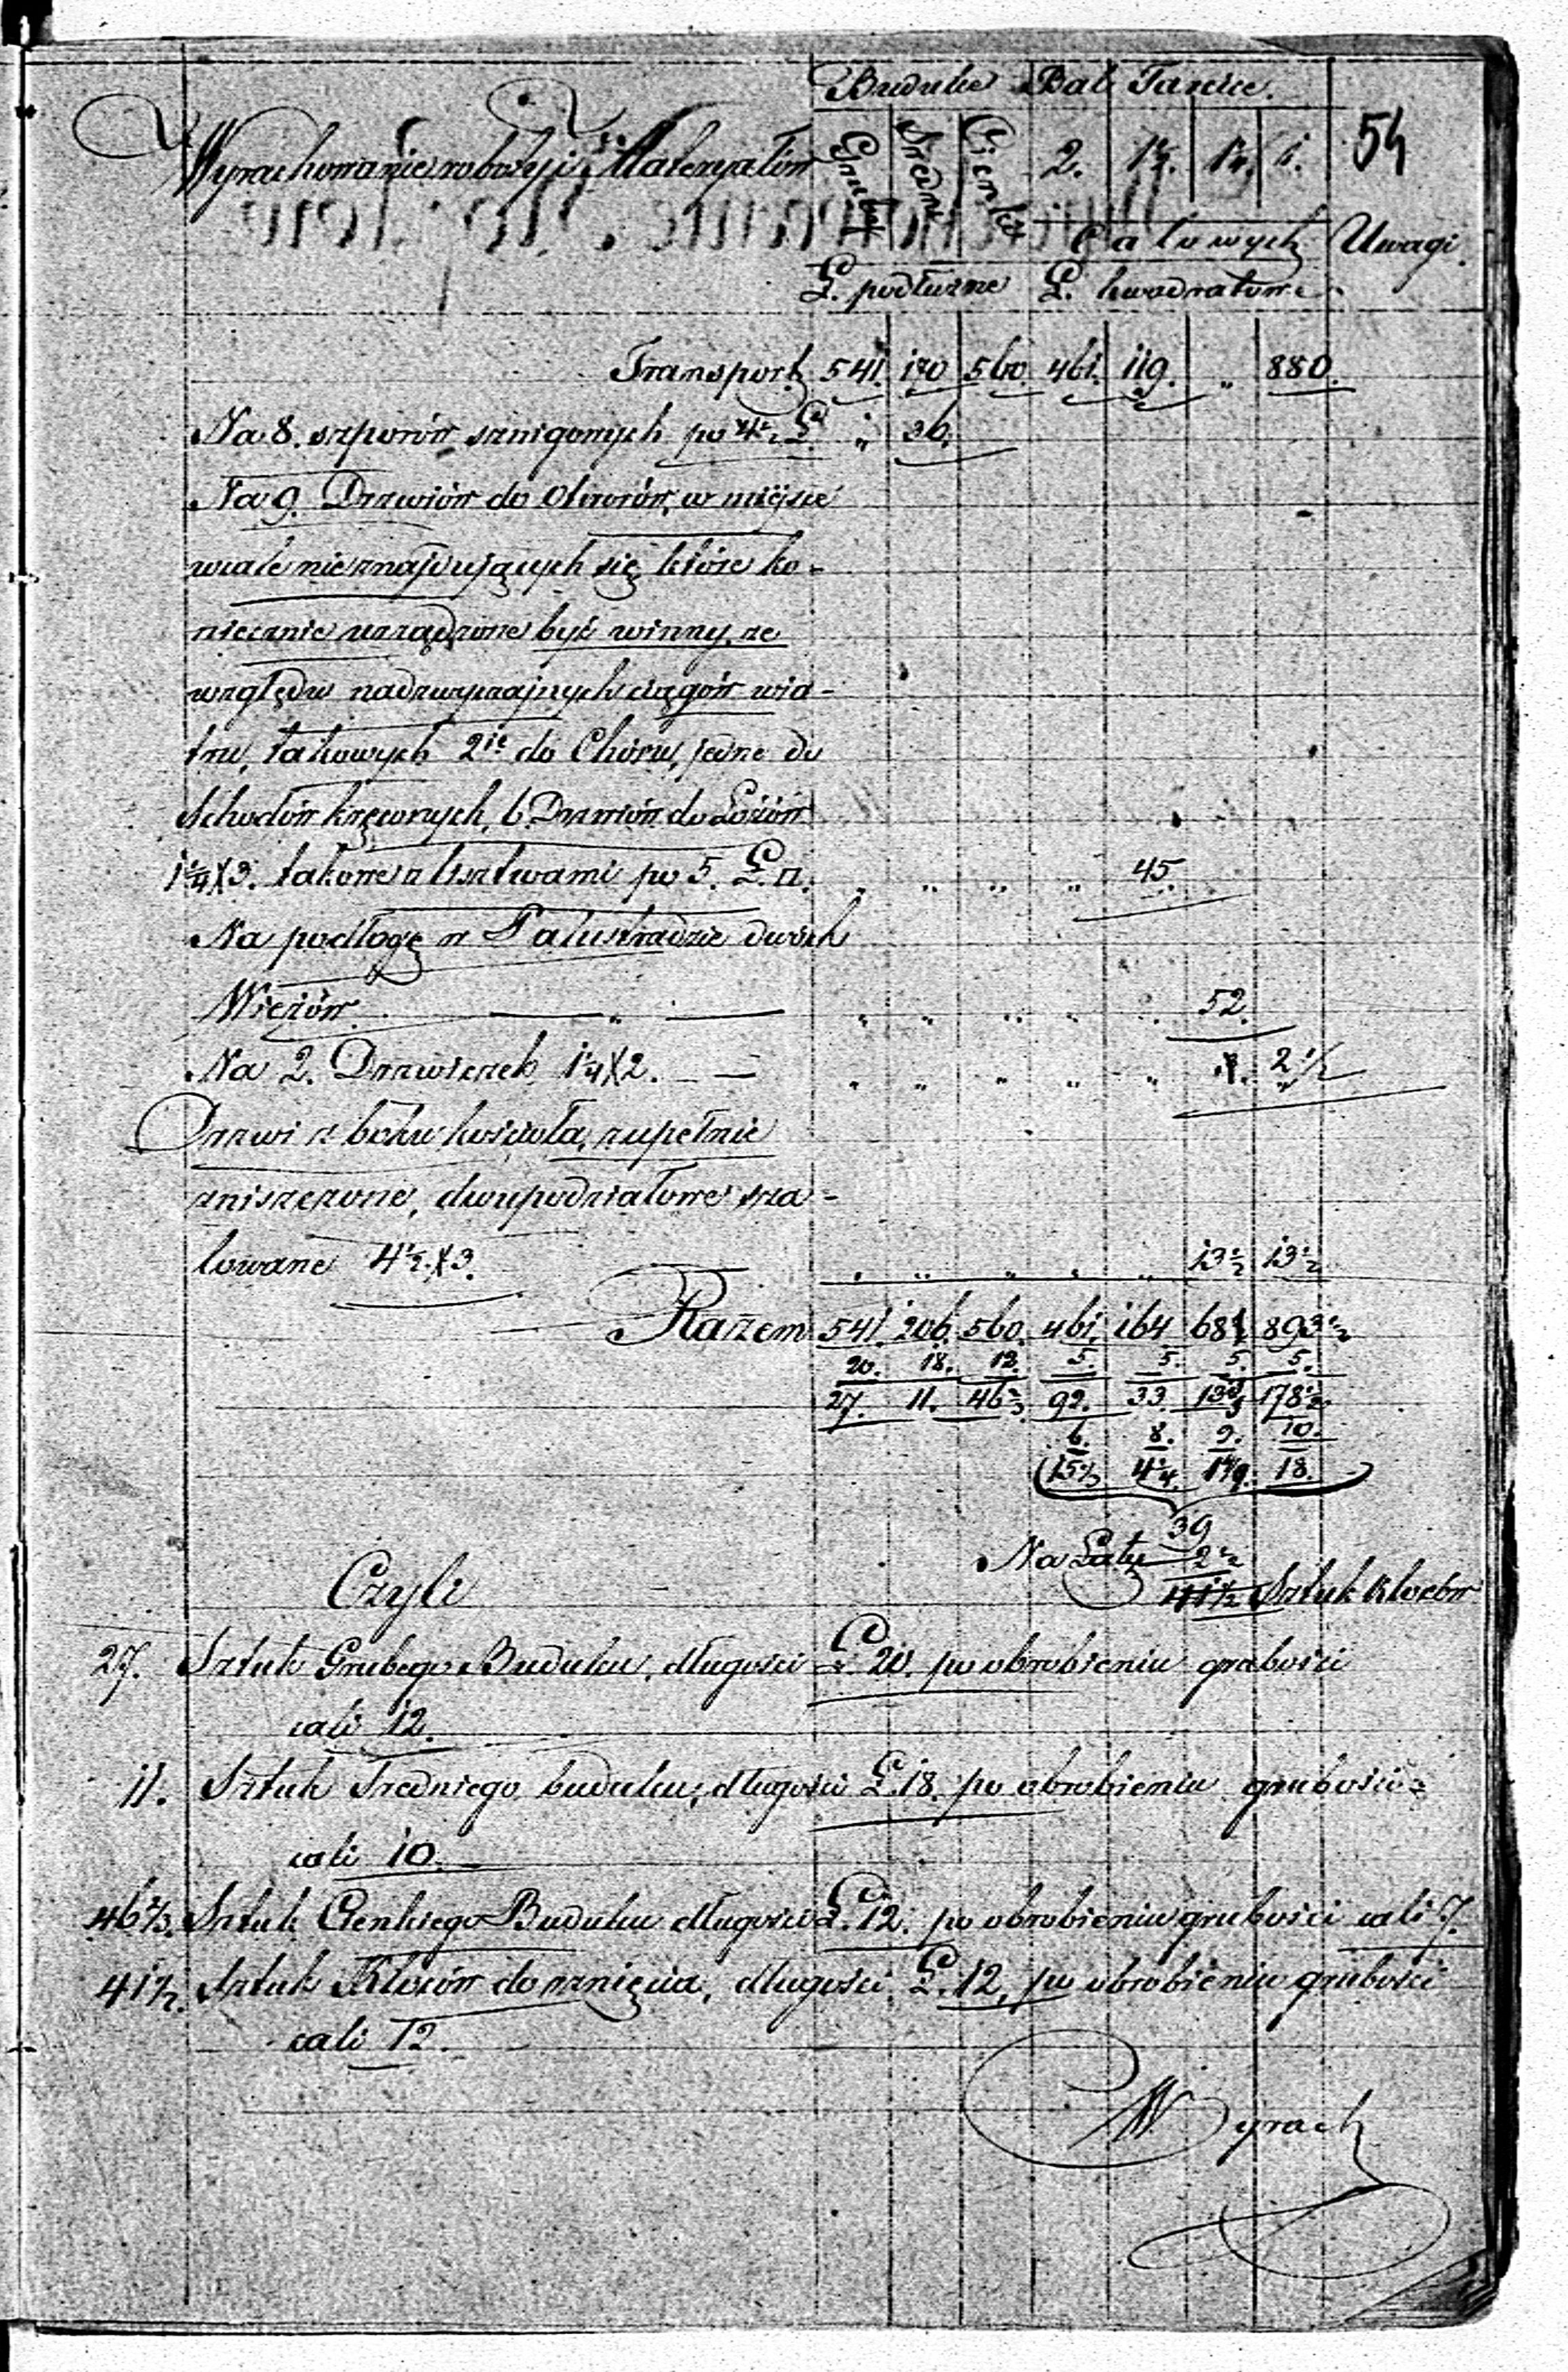 Buduke Bal Tarcice.
Wyrachowanie roboty i Materyałów Gruby Średni Cienki 2. 1½. 1¼. 1. 54
Calowych Uwagi.
Ł. podłużne Ł. kwadratowe
Transport 541. 170 560. 461. 119. „ 880.
Na 8. szporów sznigowych po 4½ Ł „ 36.
Na 9. Drzwiów do Otworów, w miejscu
wcale nieznajdujących się które ko-
niecznie urządzone być winny, ze
względu nadzwyczajnych ciągów wia-
tru, takowych 2ie do Chóru, jedne do
Schodów kręconych, 6 Drzwiów do Łożów
1¼ X 3. takowe z Lisztwami po 5. Ł. □. „ „ „ „ 45.
Na podłogę w Palustradzie dwóch
Wieżów. „ „ „ „ „ „ 52.
Na 2. Drzwiczek 1¼ X 2. — — „ „ „ „ „ „ 2½
Drzwi z boku kościoła, zupełnie
zniszczone, dwupodziałowe sza-
lowane 4½. X 3. „ „ „ „ „ 13½ 13½
Razem 541. 206. 560. 461. 164 68½ 893½
20. 18. 12. 5. 5. 5. 5.
27. 11. 46⅔ 92. 33. 13⅔ 178½
6. 8. 9. 10.
15⅓ 4¼ 1 4/9. 18.
39
Na Łaty 2½
Czyli 41½ Sztuk Klocow
27. Sztuk Grubego Buduku, długości Ł. 20. po obrobieniu grubości
cali 12.
11. Sztuk Średniego buduku, długości Ł. 18. po obrobieniu grubości
cali 10.
46⅔. Sztuk Cienkiego Buduku długości Ł. 12. po obrobieniu grubości cali 7.
41½. Sztuk Kloców do rznięcia, długości Ł. 12, po obrobieniu grubości
cali 12.
Wyrach